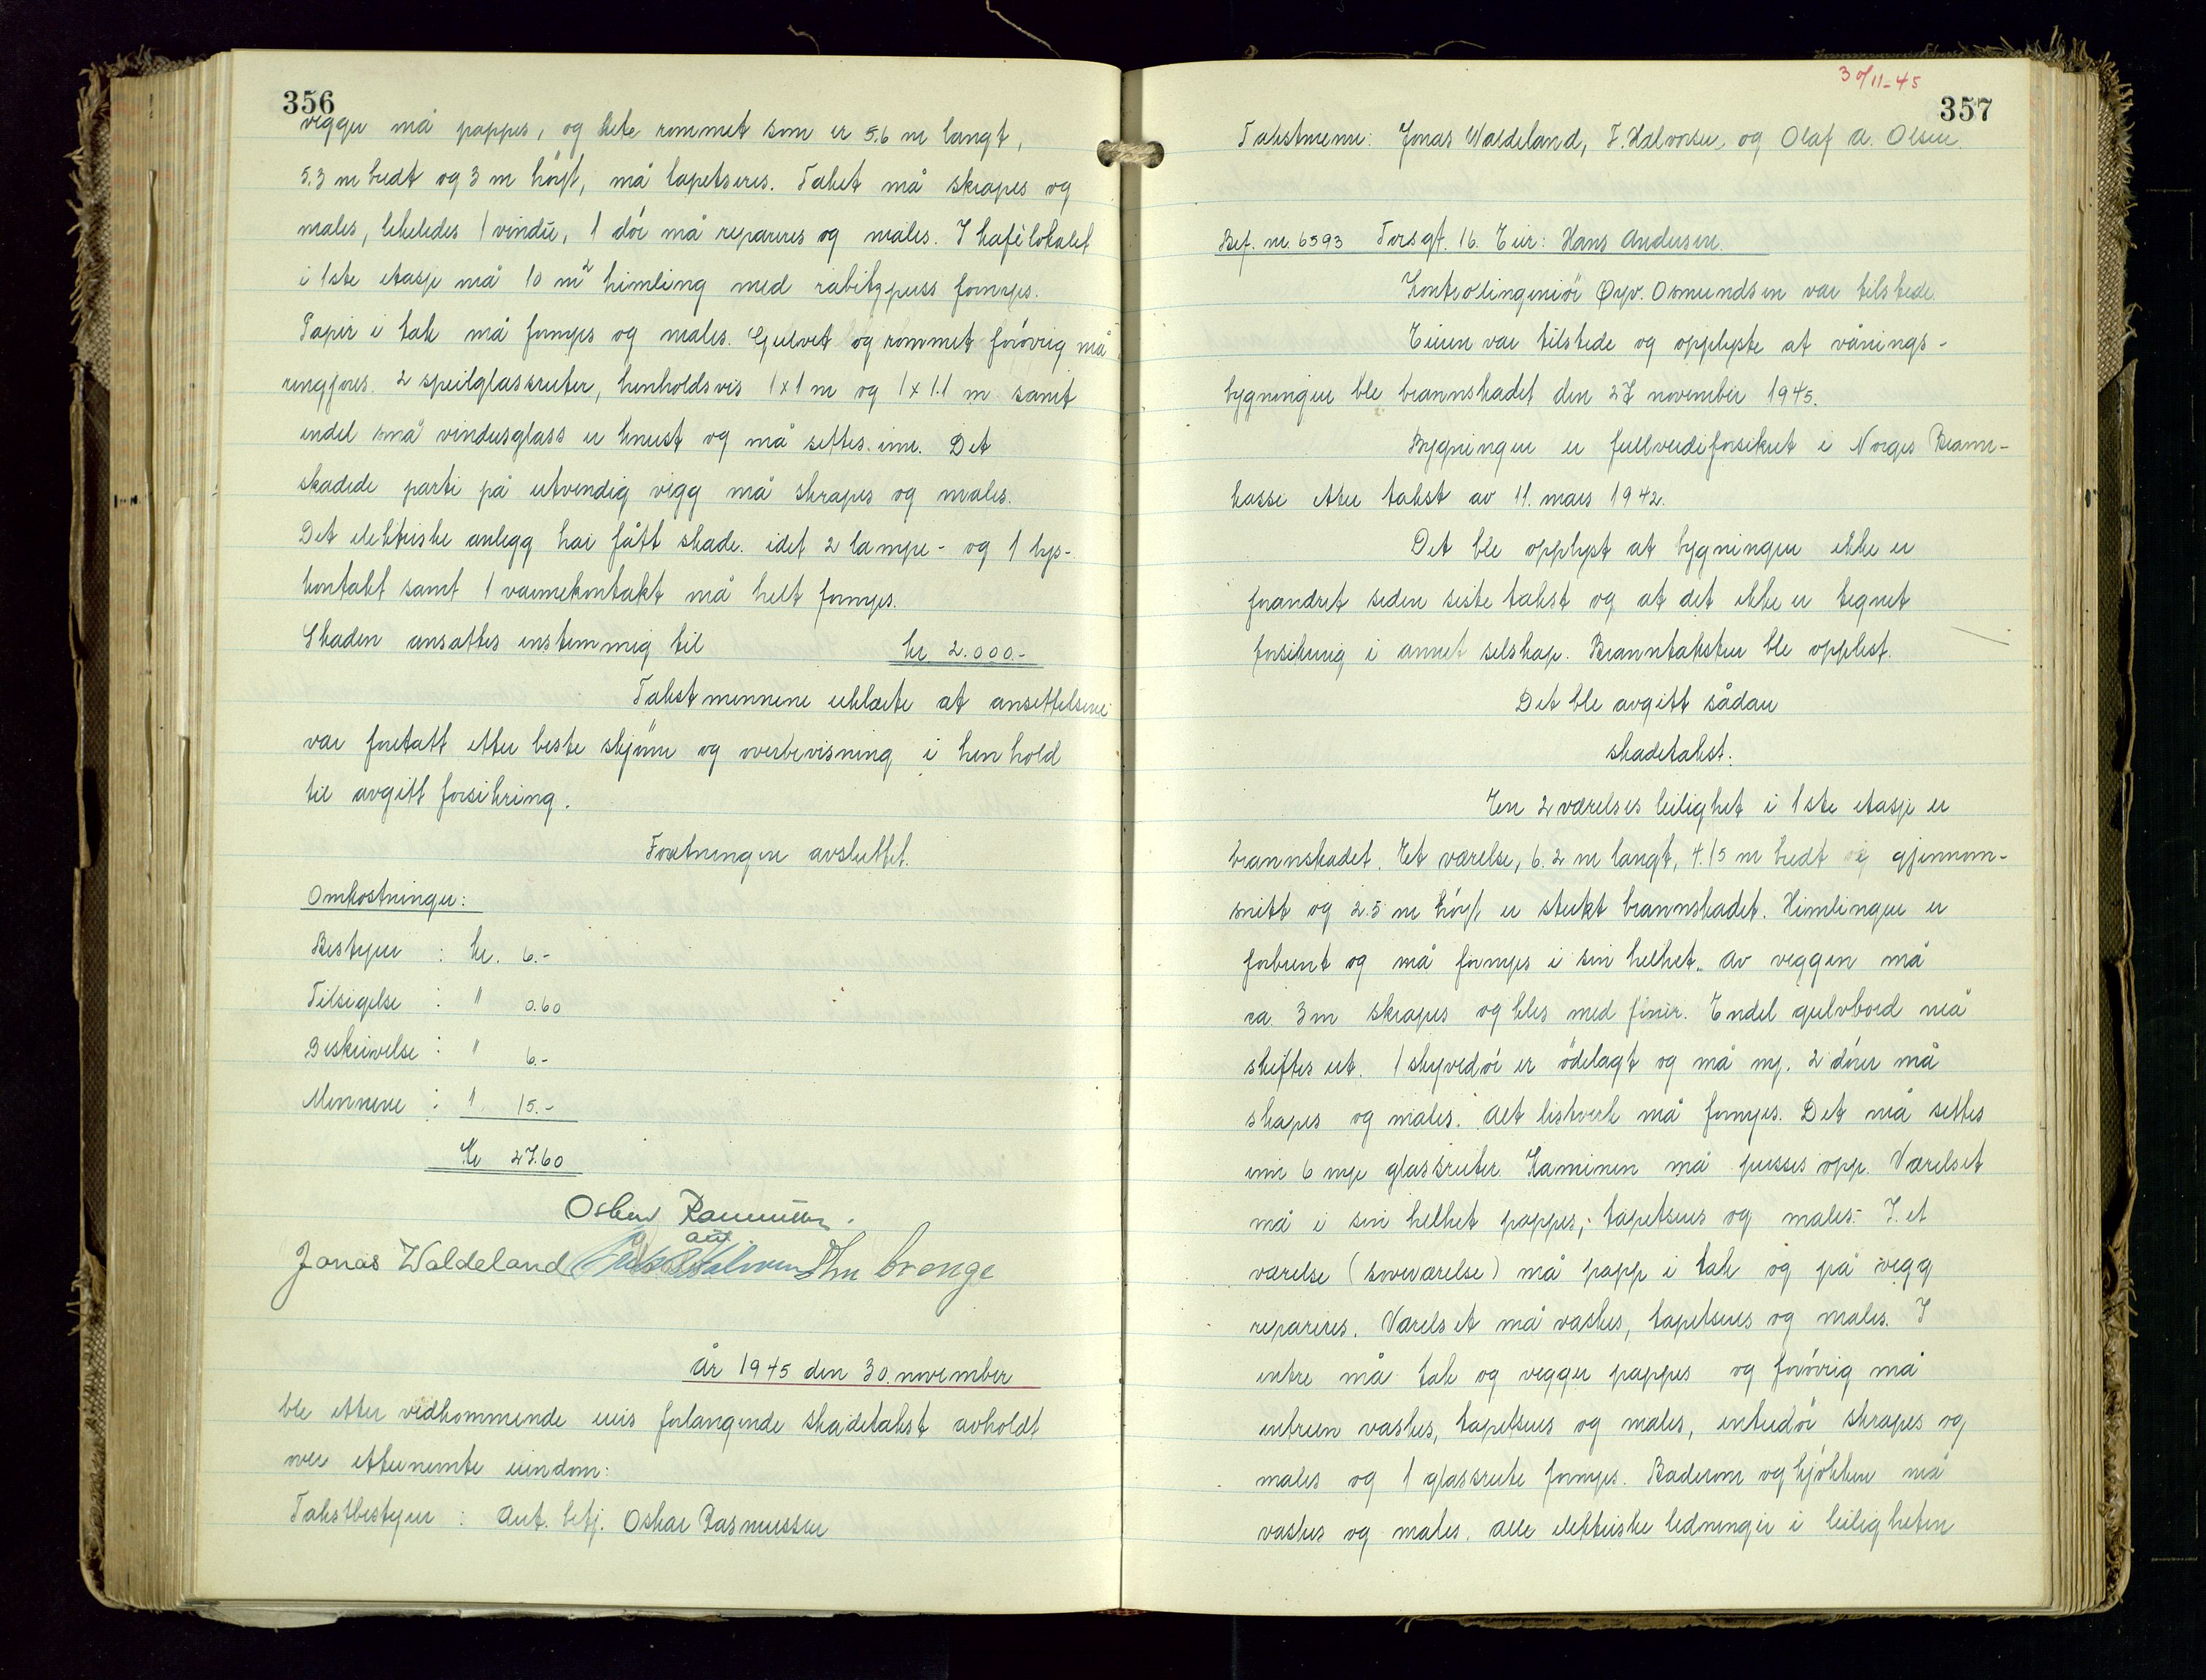 356
vegger må pappes, og hele rommet som er 5.6 m langt,
5.3 m bredt og 3 m høyt, må tapetseres. Taket må skrapes og
males, likeledes 1 vindu, 1 dör må repareres og males. I kafélokalet
i 1ste etasje må 10 m² himling med rabitzpuss fornyes.
Papir i tak må fornyes og males. Gulvet og rommet forövrig må
rengjöres. 2 speilglassruter, henholdsvis 1x1 m og 1x1.1 m samt
endel små vindusglass er knust og må settes inn. Det
skadede parti på utvendig vegg må skrapes og males.
Det elektriske anlegg har fått skade idet 2 lampe- og 1 lys-
kontakt samt 1 varmekontakt må helt fornyes.
Skaden ansattes enstemmig til kr. 2.000.-
Takstmennene erklærte at ansettelsene
var foretatt etter beste skjönn og overbevisning i henhold
til avgitt forsikring.
Forretningen avsluttet.
Omkostninger:
Bestyrer : kr. 6.-
Tilsigelse : " 0.60
Beskrivelse : " 6.-
Mennene : " 15.-
Kr 27.60
Oskar Rasmussen
aut
Jonas Waldeland Halvorsen John Grenge
År 1945 den 30. november
ble etter vedkommende eiers forlangende skadetakst avholdt
over etternevnte eiendom:
Takstbestyrer : Aut. betj. Oskar Rasmussen
30/11-45
357
Takstmenn: Jonas Waldeland, F. Halvorsen, og Olaf A. Olsen.
Bef. nr. 6593 Torsgt. 16. Eier: Hans Andersen.
Kontrolingeniör Øyv. Osmundsen var tilstede.
Eieren var tilstede og opplyste at vånings-
bygningen ble brannskadet den 27 november 1945.
Bygningen er fullverdiforsikret i Norges Brann-
kasse etter takst av 11. mars 1942.
Det ble opplyst at bygningen ikke er
forandret siden siste takst og at det ikke er tegnet
forsikring i annet selskap. Branntaksten ble opplest.
Det ble avgitt sådan
skadetakst:
En 2 værelses leilighet i 1ste etasje er
brannskadet. Et værelse, 6.2 m langt, 4.15 m bredt i gjennom-
snitt og 2.5 m höyt er sterkt brannskadet. Himlingen er
forbrent og må fornyes i sin helhet. Av veggen må
ca. 3 m skrapes og kles med finér. Endel gulvbord må
skiftes ut. 1 skyvedör er ödelagt og må ny. 2 dörer må
skrapes og males. Alt listverk må fornyes. Det må settes
inn 6 nye glassruter. Kaminen må pusses opp. Værelset
må i sin helhet pappes, tapetseres og males. I et
værelse (soveværelse) må papp i tak og på vegg
repareres. Værelset må vaskes, tapetseres og males. I
entre må tak og vegger pappes og forövrig må
entreen vaskes, tapetseres og males, entredör skrapes og
males og 1 glassrute fornyes. Baderom og kjökken må
vaskes og males. Alle elektriske ledninger i leiligheten